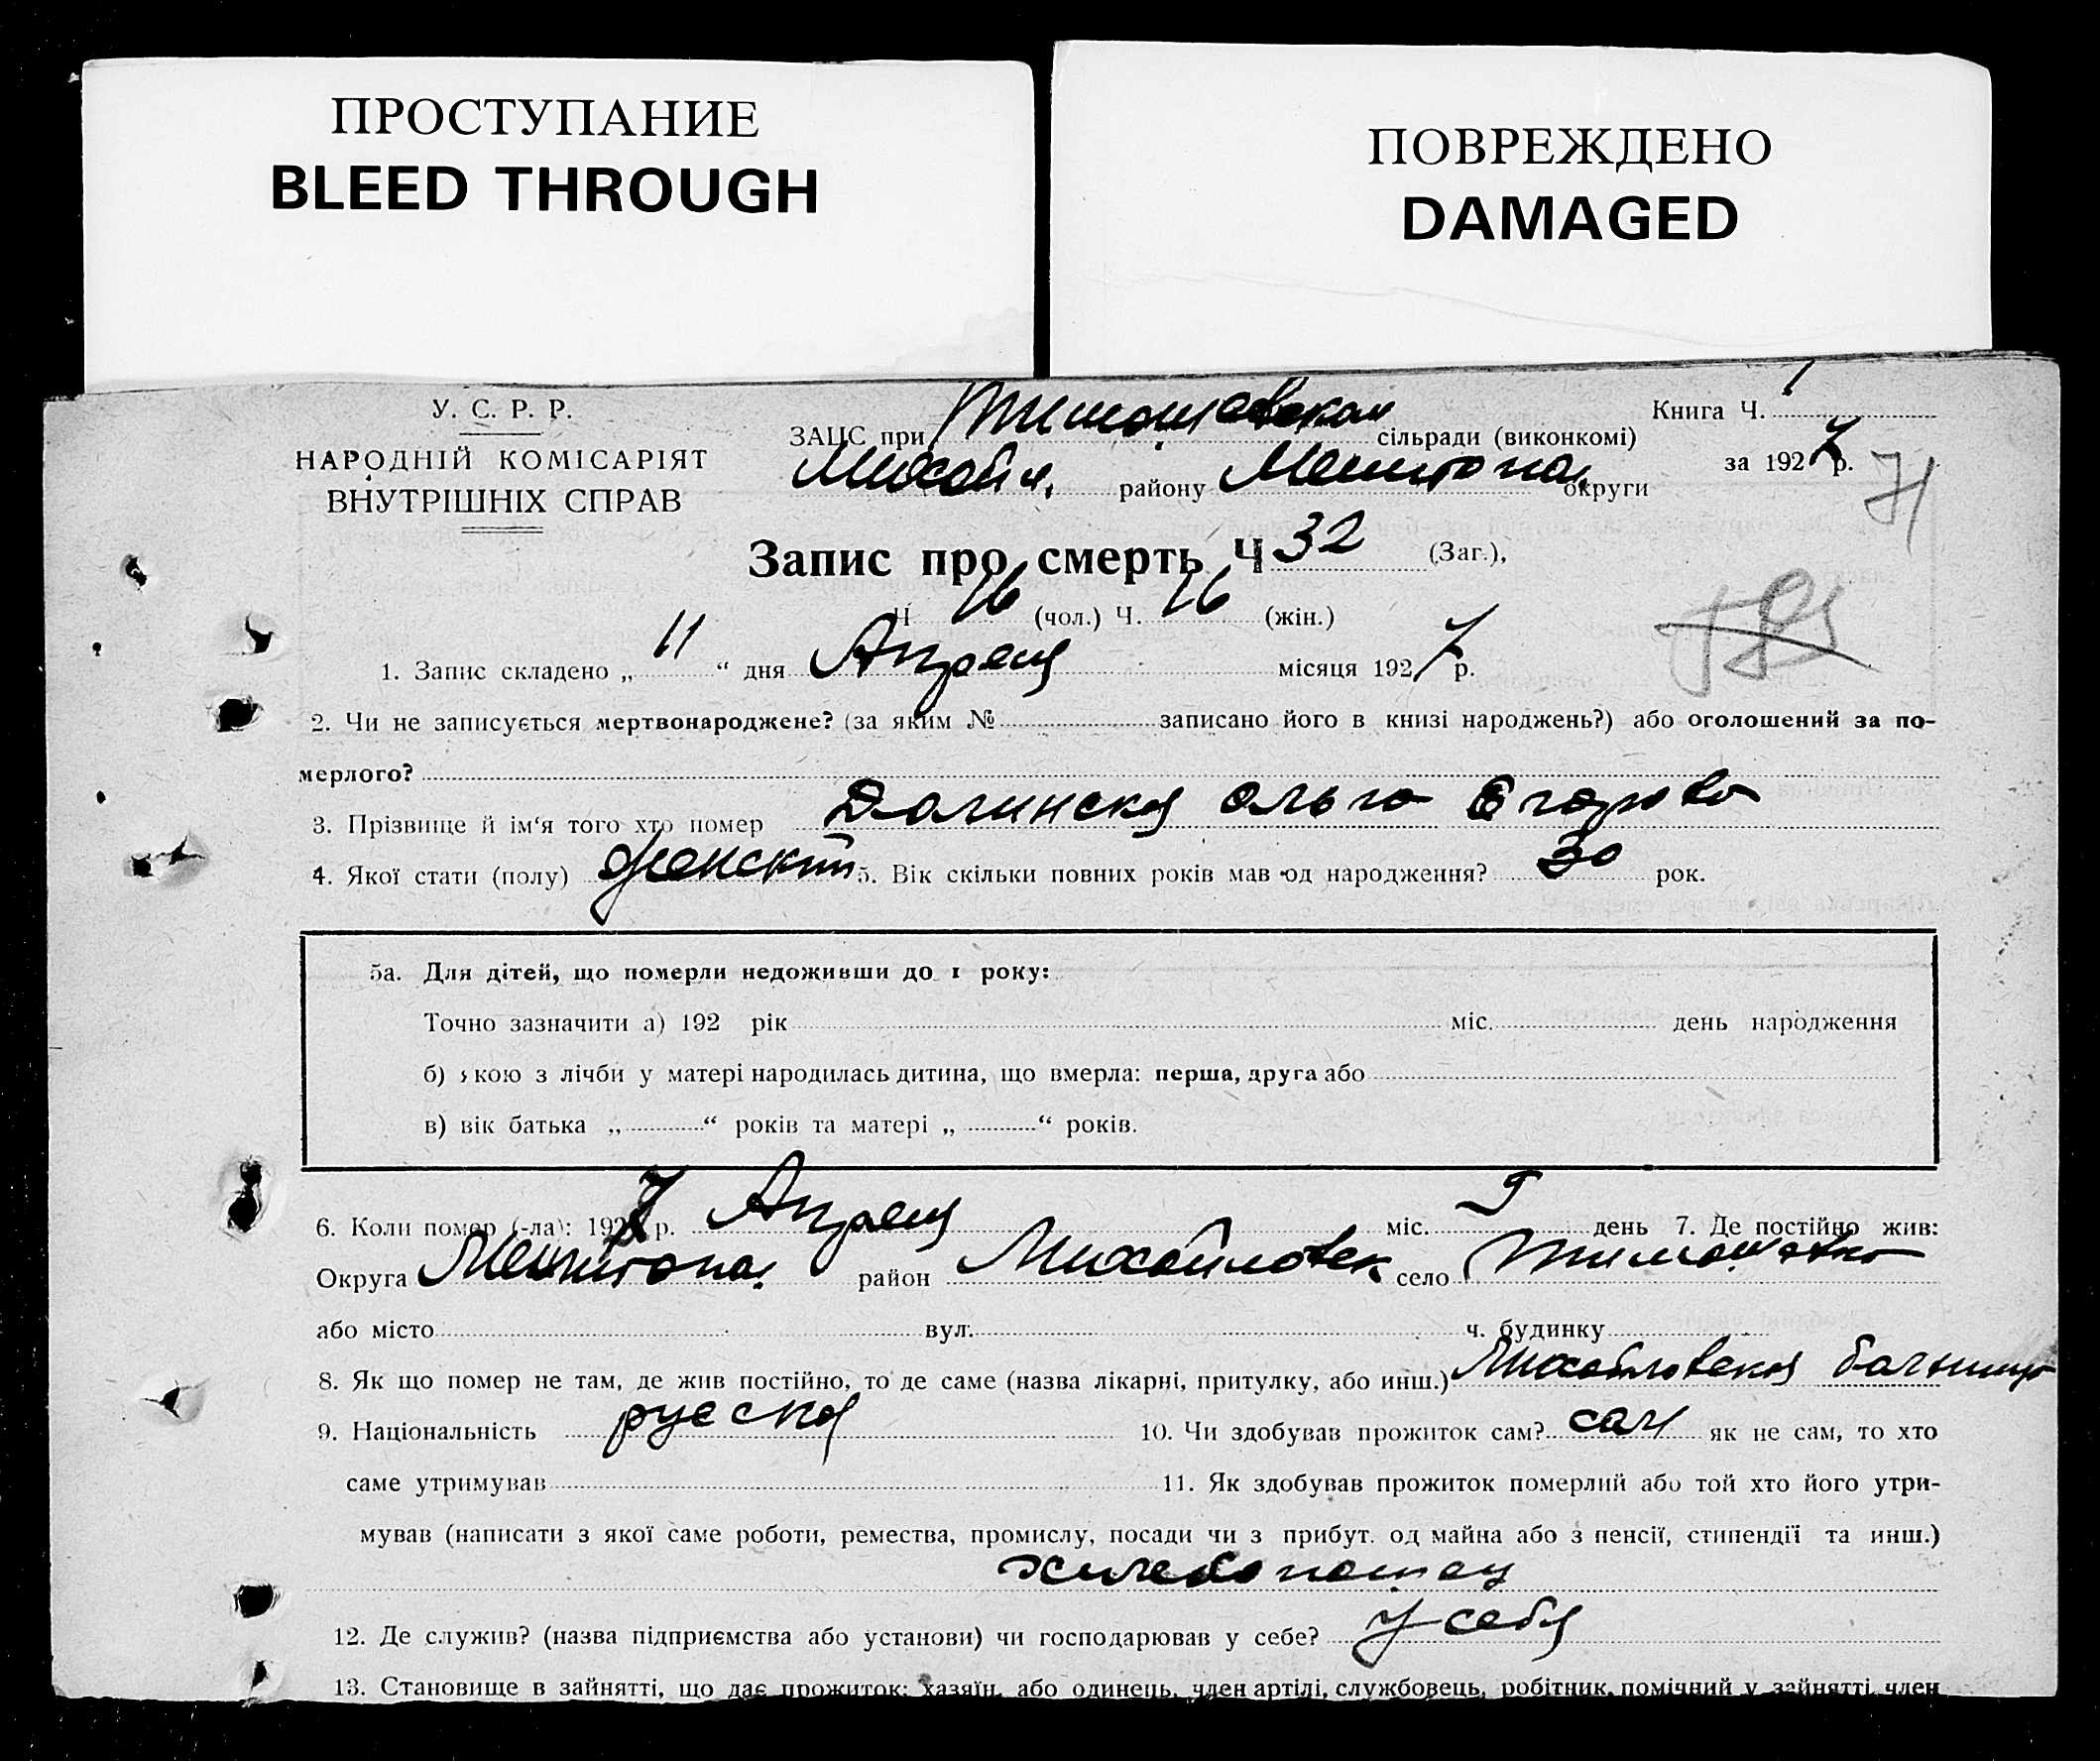 ПРОСТУПАНИЕ
BLEED THROUGH
ПОВРЕЖДЕНО
DAMAGED
У. С. Р. Р.
НАРОДНІЙ КОМІСАРІЯТ
ВНУТРІШНІХ СПРАВ
ЗАЦС при Тимошовском сільради (виконкомі)
Михайл. району Мелитопол. округи
Книга Ч. 1
за 1927 р.
71
Запис про смерть Ч 32 (Заг.),
Ч 16 (чол.) Ч. 16 (жін.)
1. Запис складено „ 11 “ дня Апреля місяця 1927 р.
2. Чи не записується мертвонароджене? (за яким № записано його в книзі народжень?) або оголошений за по-
мерлого?
3. Прізвище й ім‘я того хто помер Долинская Ольга Егорово
4. Якої стати (полу) женский 5. Вік скільки повних років мав од народження? 30 рок.
5а. Для дітей, що померли недоживши до 1 року:
Точно зазначити а) 192 рік міс. день народження
б) якою з лічби у матері народилась дитина, що вмерла: перша, друга або
в) вік батька „ “ років та матері „ “ років.
6. Коли помер (-ла): 1927 р. Апреля міс. 9 день 7. Де постійно жив:
Округа Мелитопол. район Михайловск село Тимошовко
або місто вул. ч. будинку
8. Як що помер не там, де жив постійно, то де саме (назва лікарні, притулку, або инш.) Михайловская больница
9. Національність русская 10. Чи здобував прожиток сам? сам як не сам, то хто
саме утримував 11. Як здобував прожиток померлий або той хто його утри-
мував (написати з якої саме роботи, ремества, промислу, посади чи з прибут. од майна або з пенсії, стипендії та инш.)
хлебопашец
12. Де служив? (назва підприємства або установи) чи господарював у себе? у себя
13. Становище в зайнятті, що дає прожиток: хазяїн, або одинець, член артілі, службовець, робітник, помічний у зайнятті член